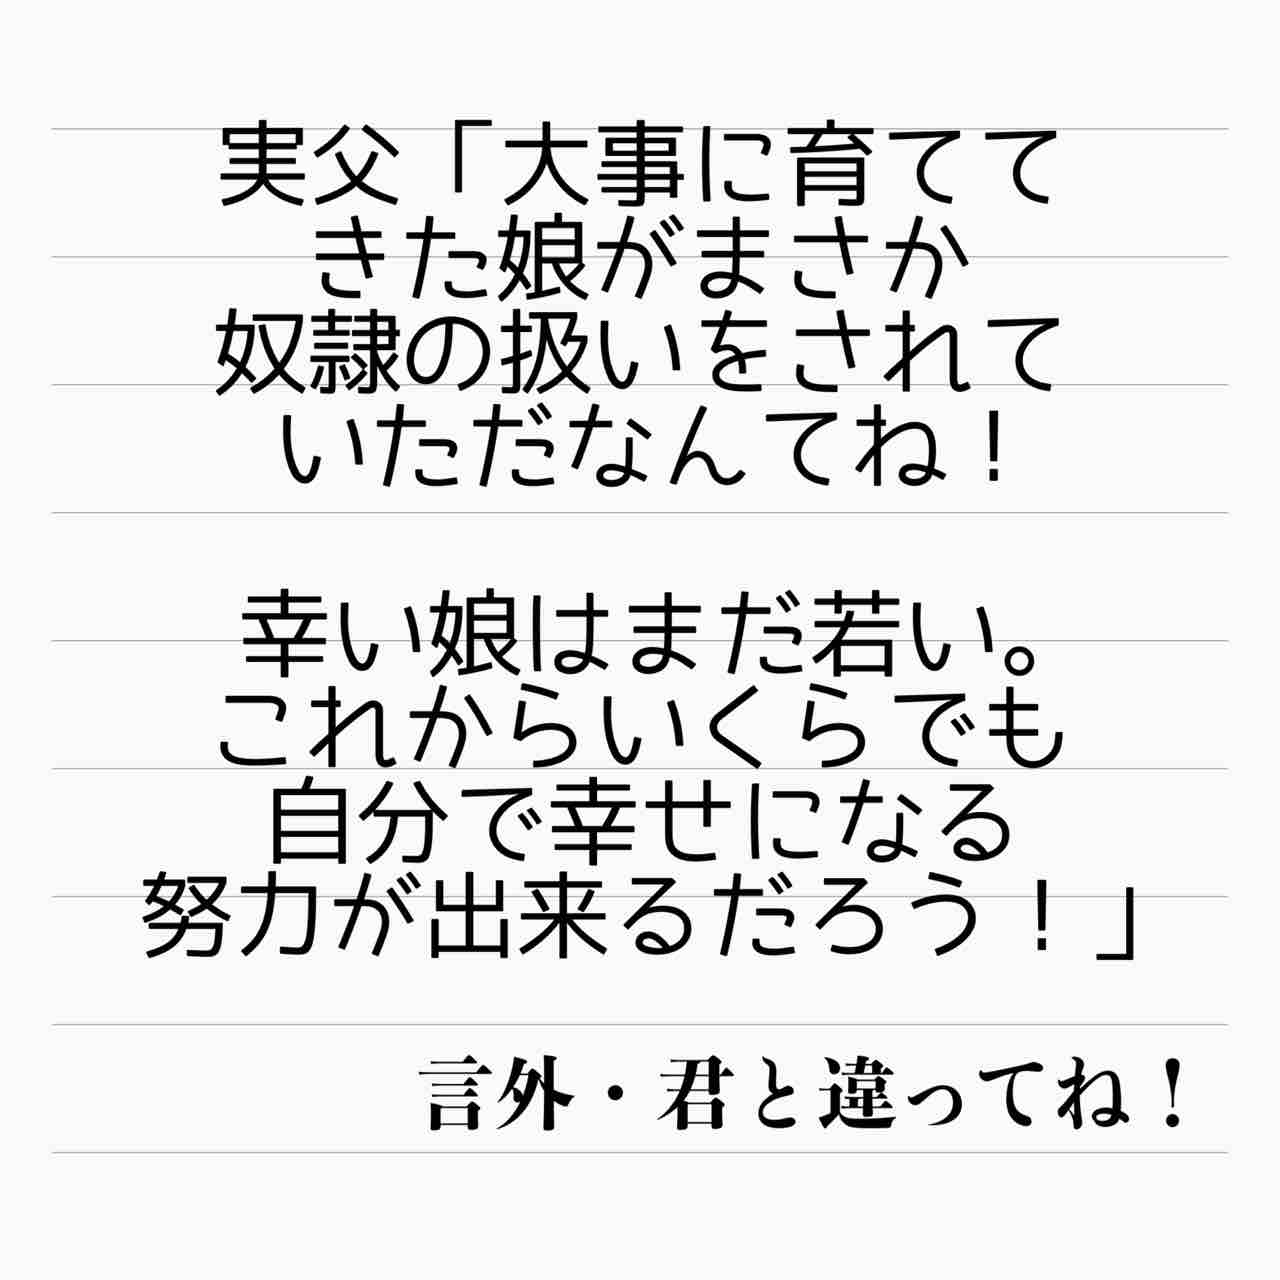 実父「大事に育てて
きた娘がまさか
奴隷の扱いをされて
いただなんてね！
幸い娘はまだ若い。
これからいくらでも
自分で幸せになる
努力が出来るだろう！」
言外・君と違ってね！